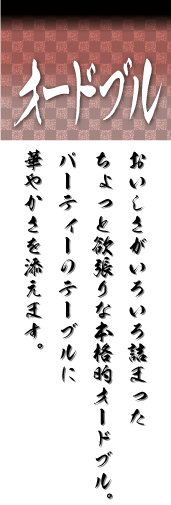 オードブル
おいしさがいろいろ詰まった
ちょっと欲張りな本格的オードブル。
パーティーのテーブルに
華やかさを添えます。